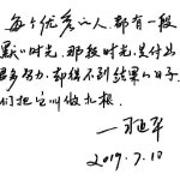 每个优秀的人,都有一段
默的时光,那段时光,是付出
很多努力,却得不到结果的日子,
们把它叫做扎根。
2019.7.10